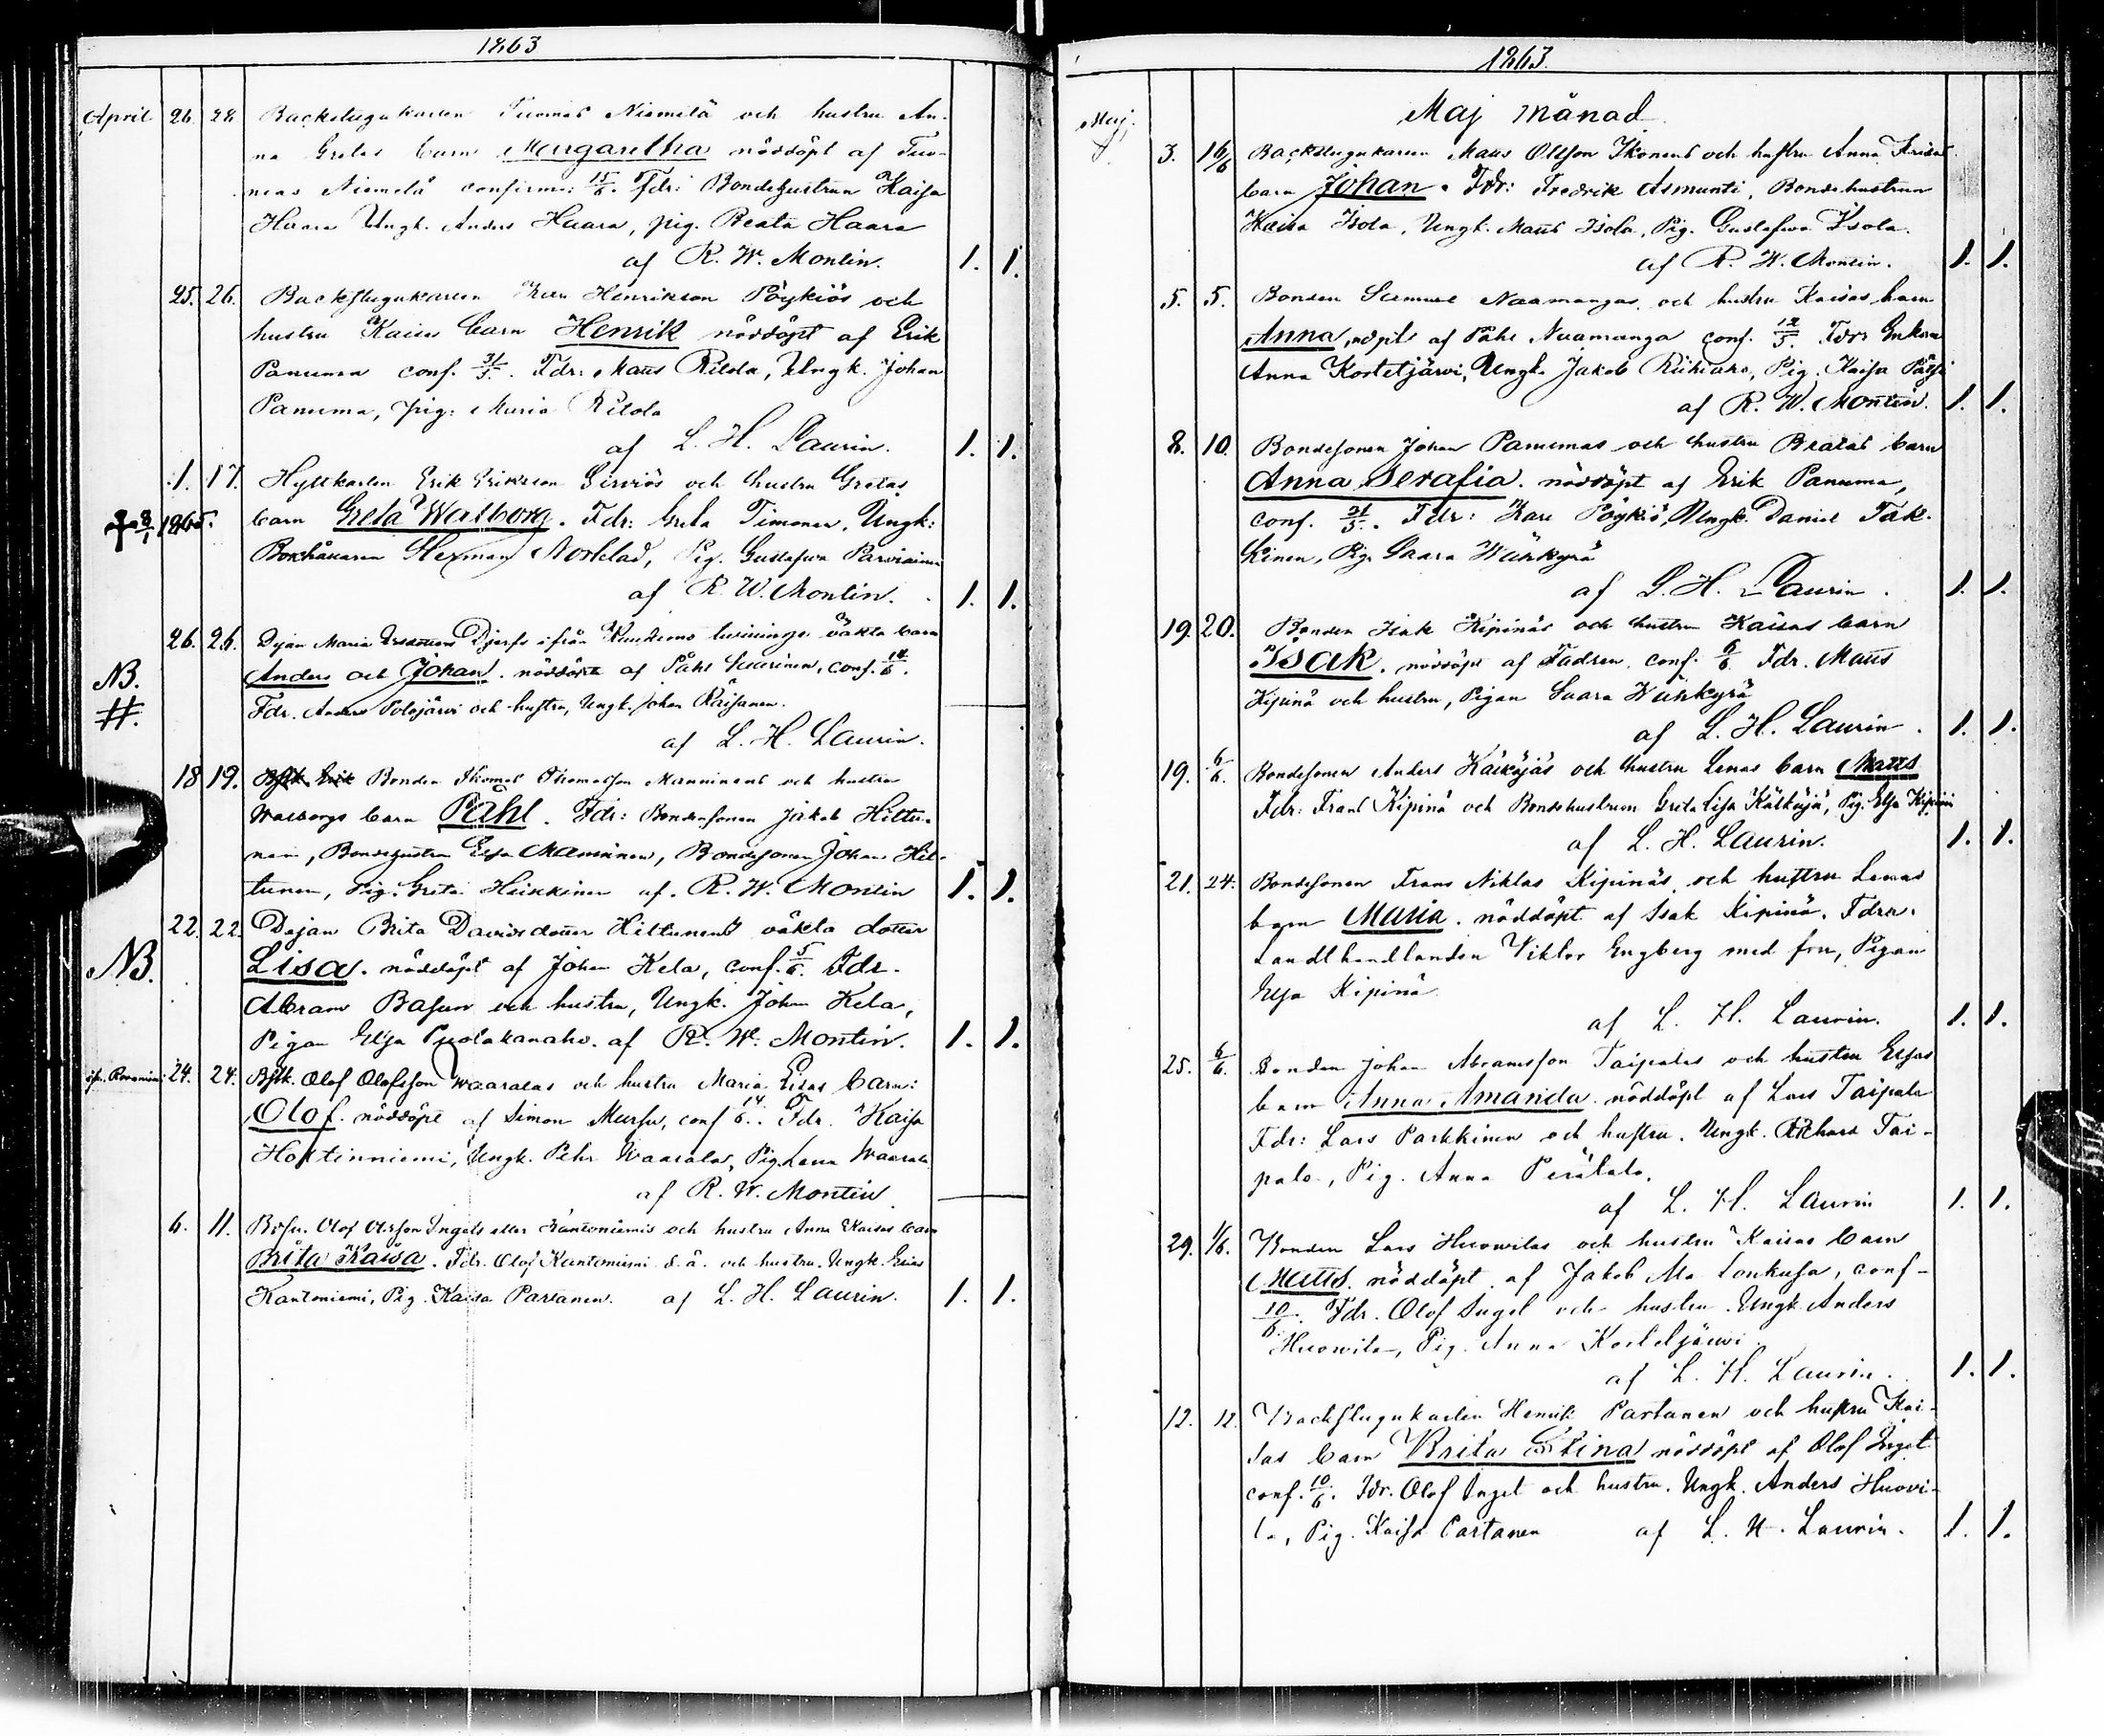 1863
April 26. 28. Backstugukarlen Tuomas Niemelä och hustru An-
na Gretas barn Margaretha nöddöpt af Tuo-
mas Niemelä confirm: 15/6. Fdr: Bondehustrun Kaisa
Haara Ungk. Anders Haara, pig. Beata Haara
af R. W. Montin. 1. 1.
25. 26. Backstugukarlen Henrikson Pöykiös och
hustru Kaisas barn Henrik nöddöpt af Erik
Panuma conf. 31/5. Fdr: Matts Ritola, Ungk. Johan
Panuma, pig: Maria Ritola
af L. H. Laurin. 1. 1.
1. 17. Hyttkarlen Erik Erikson Sirviös och hustru Gretas
† 3/1 1865. barn Greta Walborg. Fdr: Greta Timonen, Ungk:
Bokhållaren Herman Norblad, Pig. Gustafva Parviainen
af R. W. Montin. 1. 1.
26. 26. Dejan Maria Djerfs ifrån oäkta barn
NB. Anders och Johan. nöddöpte af Påhl conf. 14/6.
#. Fdr. Anders Polojärvi och hustru, Ungk. Johan Räisänen.
af L. H. Laurin.
18 19. Bonden Thomas Thomasson Manninens och hustru
Walborgs barn Påhl. Fdr: Bondesonen Jakob Hiltu-
nen, Bondehustru Elsa Manninen, Bondesonen Johan Hil-
tunen, Pig. Greta Heikkinen af. R. W. Montin 1. 1.
22. 22. Dejan Brita Davidsdotter Hiltunens oäkta dotter
NB. Lisa. nöddöpt af Johan Kela, conf. 5/6. Fdr.
Abram Basun och hustru, Ungk. Johan Kela,
Pigan Elsa Puolakanaho. af R. W. Montin. 1. 1.
24. 24. Bstk. Olof Olofsson Waaralas och hustru Maria Lisas barn:
Olof. nöddöpt af Simon Mursu, conf 14/6. Fdr. Kaisa
Hortinniemi, Ungk. Pehr Waarala, Pig Lena Waarala
af R. W. Montin
6. 11. Bdsn. Olof Olsson Ingets eller Kantoniemis och hustru Anna Kaisas barn
Brita Kaisa. Fdr. Olof Kantoniemi d. ä. och hustru. Ungk. Erias
Kantoniemi, Pig. Kaisa Partanen. af L. H. Laurin. 1. 1.
1863.
Maj månad
Maj. 3. 16/6 Backstugukarlen Matts Olsson Ikonens och hustru Anna Kaisas
barn Johan. Fdr: Fredrik Asmunti, Bondehustrun
Kaisa Isola, Ungk. Matts Isola, Pig. Gustafva Isola.
af R. W. Montin. 1. 1.
5. 5. Bonden Samuel Naamangas och hustru Kaisas barn
Anna, ndpt af Påhl Naamanga conf. 12/5. Fdr: Enkan
Anna Kostetjärvi, Ungk. Jakob Riihiaho, Pig. Kaisa Pätsi
af R. W. Montin. 1. 1.
8. 10. Bondesonen Johan Panumas och hustru Beatas barn
Anna Serafia. nöddöpt af Erik Panuma,
conf. 31/5. Fdr: Pöykiö, Ungk. Daniel Tak-
kinen, Pig. Saara Wänkyrä
af L. H. Laurin. 1. 1.
19. 20. Bonden Isak Kipinäs och hustru Kaisas barn
Isak. nöddöpt af Fadren. conf. 9/6. Fdr. Matts
Kipinä och hustru, Pigan Saara Wänkyrä
af L. H. Laurin. 1. 1.
19. 6/6. Bondesonen Anders Käiköjäs och hustru Lenas barn Matts
Fdr: Frans Kipinä och Bondehustrun Greta Lisa Pig. Elsa Kipinä
af L. H. Laurin. 1. 1.
21. 24. Bondesonen Frans Niklas Kipinäs och hustru Lenas
barn Maria. nöddöpt af Isak Kipinä. Fdrr.
Landthandlanden Viktor Engberg med fru, Pigan
Elsa Kipinä
af L. H. Laurin. 1. 1.
25. 6/6. Bonden Johan Abramsson Taipales och hustru Elsas
barn Anna Amanda nöddöpt af Lars Taipale
Fdr: Lars Parkkinen och hustru. Ungk. Richard Tai-
pale, Pig. Anna Perätalo.
af L. H. Laurin 1. 1.
29. 1/6. Bonden Lars Huovilas och hustru Kaisas barn
Matts. nöddöpt af Jakob Ala Lonkusa, conf-
10/6. Fdr. Olof Inget och hustru. Ungk. Anders
Huovila, Pig. Anna Kostetjärvi.
af L. H. Laurin. 1. 1.
12. 12. Backstugukarlen Henrik Partanen och hustru Kai-
sas barn Brita Stina nöddöpt af Olof Inget
conf. 10/6. Fdr. Olof Inget och hustru. Ungk. Anders Huovi-
la, Pig. Kaisa Partanen af L. H. Laurin. 1. 1.